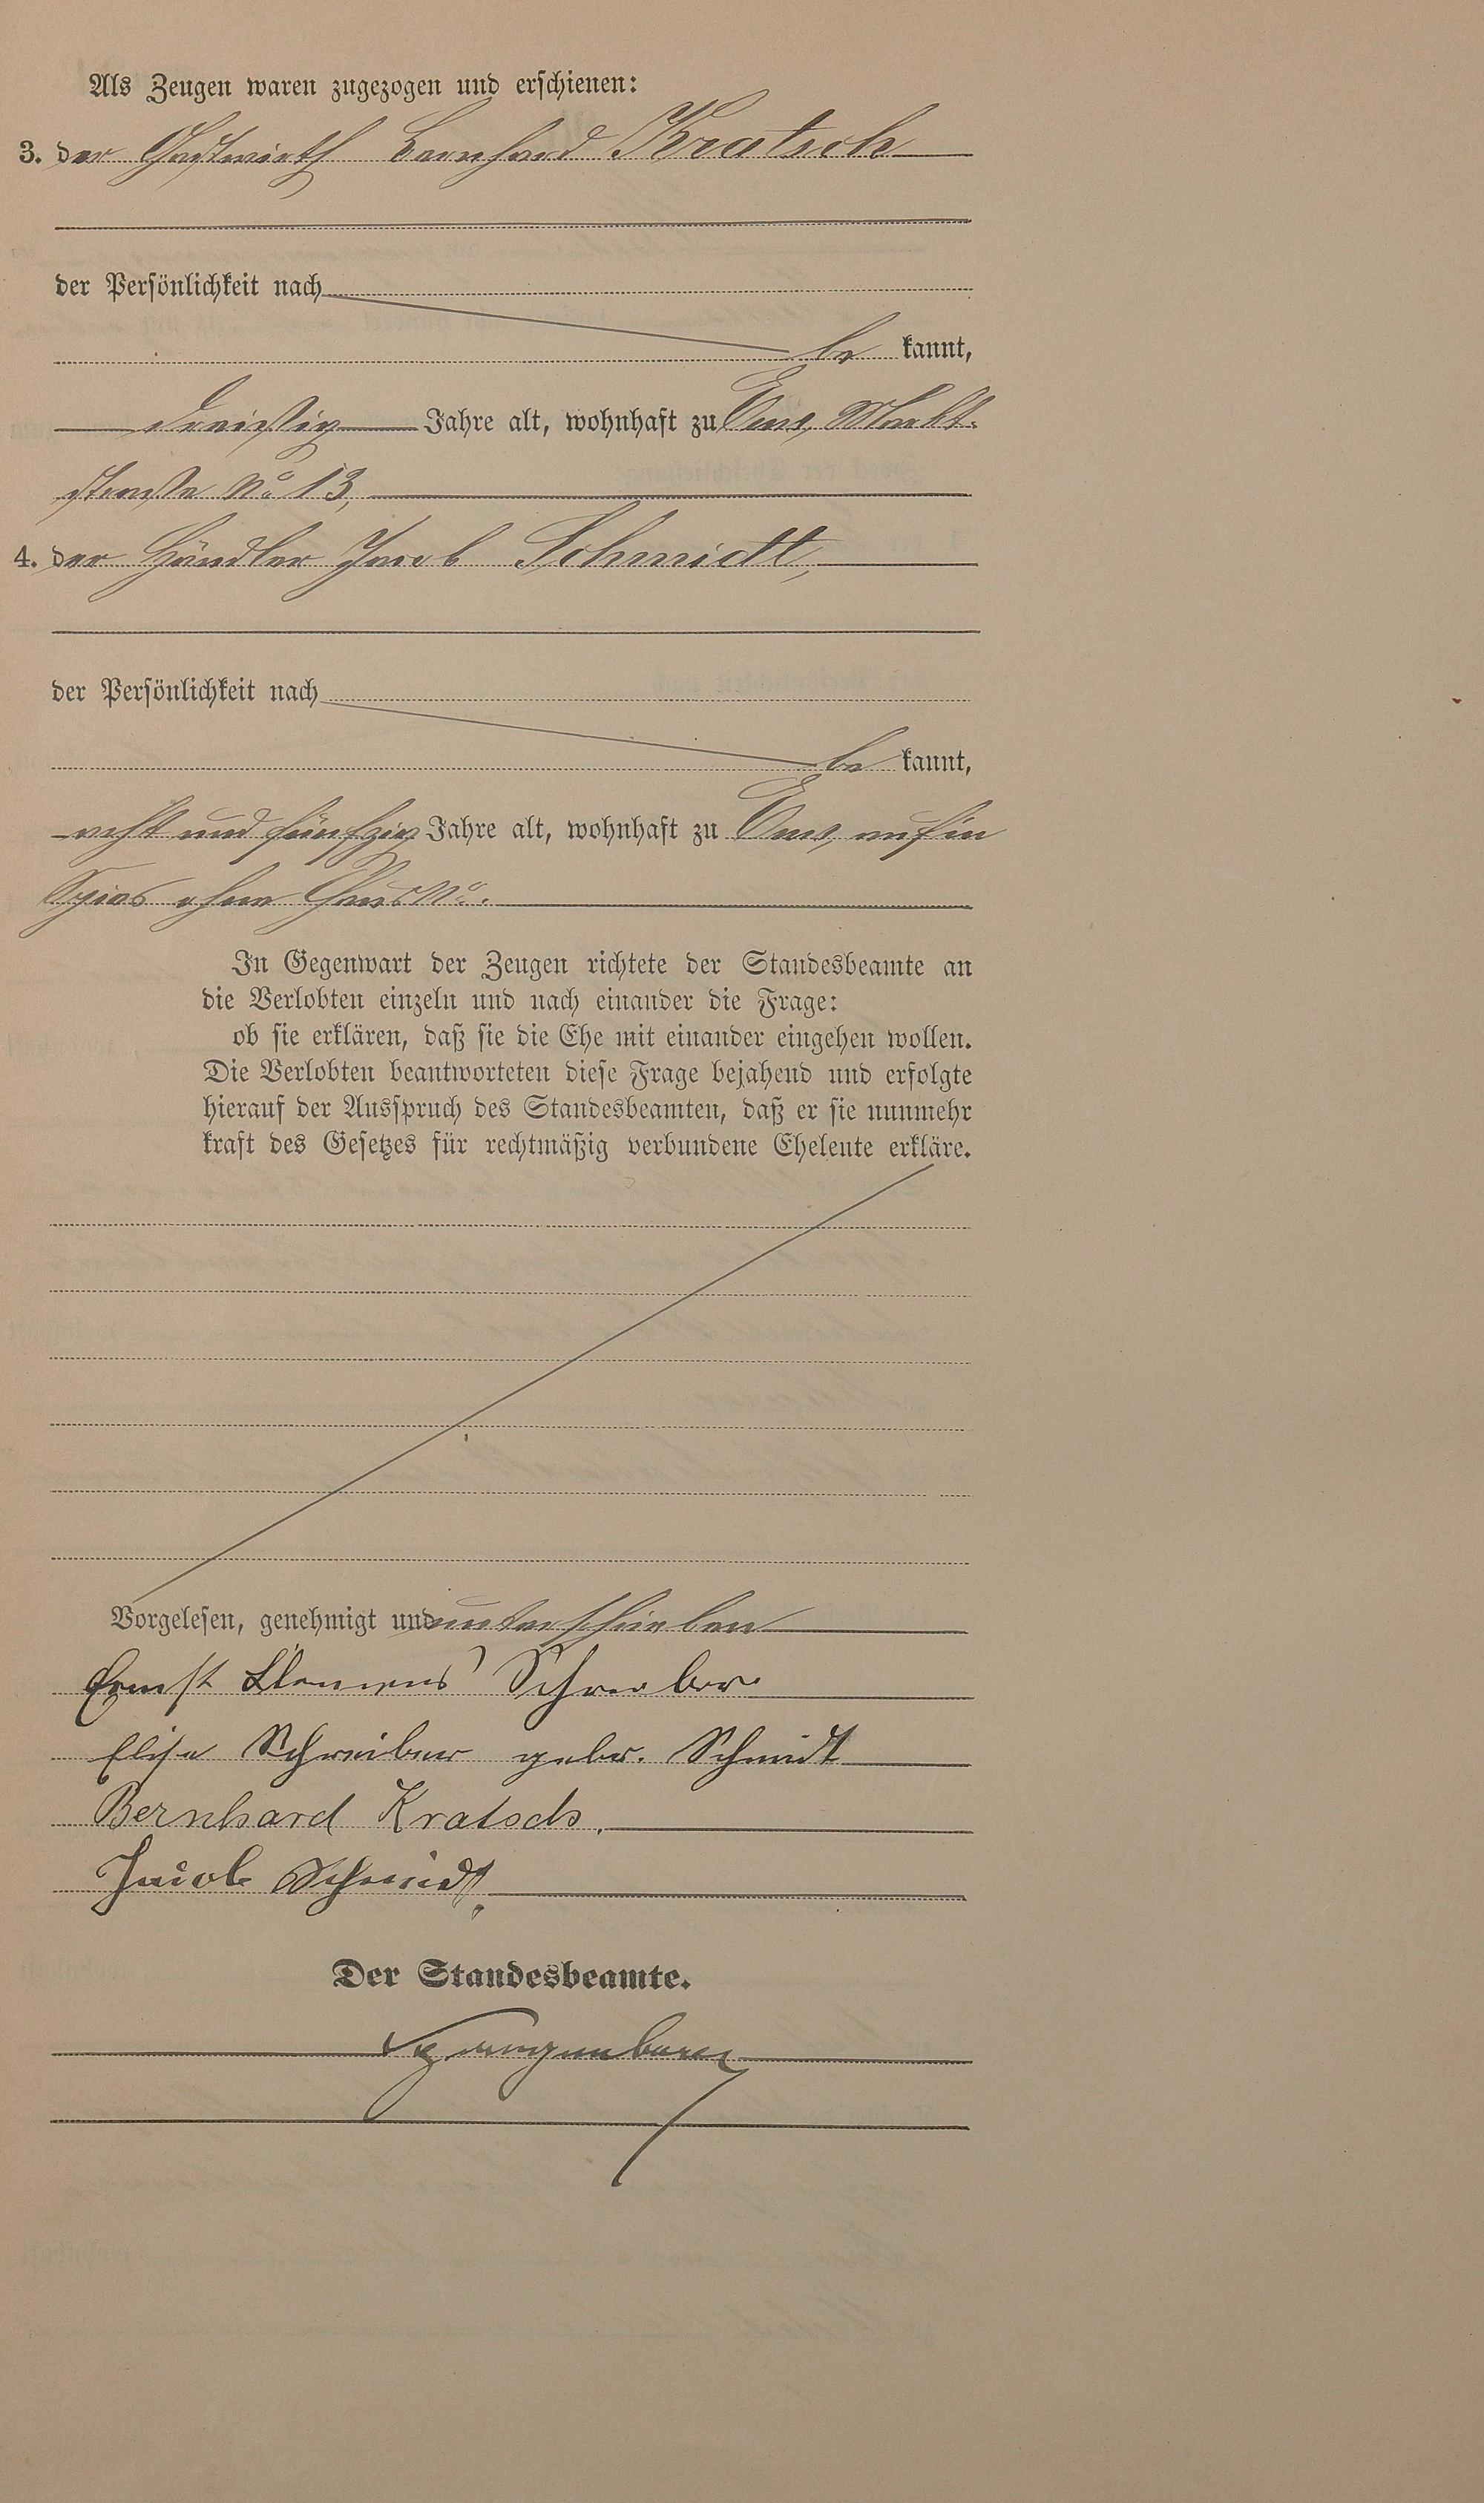 Als Zeugen waren zugezogen und erschienen:
3. der Gastwirth Bernhard Kratsch
der Persönlichkeit nach
be kannt,
dreißig Jahre alt, wohnhaft zu Ems, Markt-
straße No 13,
4. der Händler Jacob Schmidt,
der Persönlichkeit nach
be kannt,
acht und fünfzig Jahre alt, wohnhaft zu Ems, auf'm
Spies ohne Haus No.
In Gegenwart der Zeugen richtete der Standesbeamte an
die Verlobten einzeln und nach einander die Frage:
ob sie erklären, daß sie die Ehe mit einander eingehen wollen.
Die Verlobten beantworteten diese Frage bejahend und erfolgte
hierauf der Ausspruch des Standesbeamten, daß er sie nunmehr
kraft des Gesetzes für rechtmäßig verbundene Eheleute erkläre.
Vorgelesen, genehmigt und unterschrieben
Ernst Clemens Schreiber
Elise Schreiber gebr. Schmidt
Bernhard Kratsch.
Jacob Schmidt.
Der Standesbeamte.
Spangenberg